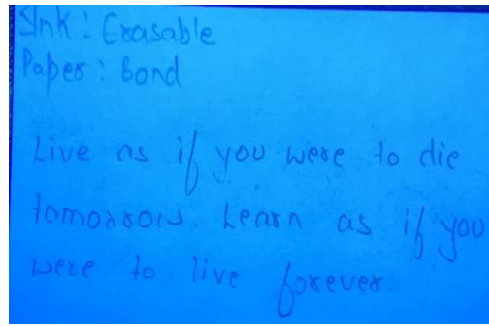 Ink : Erasable
Paper : Bond
Live as if you were to die
tomorrow. Learn as if you
were to live forever.